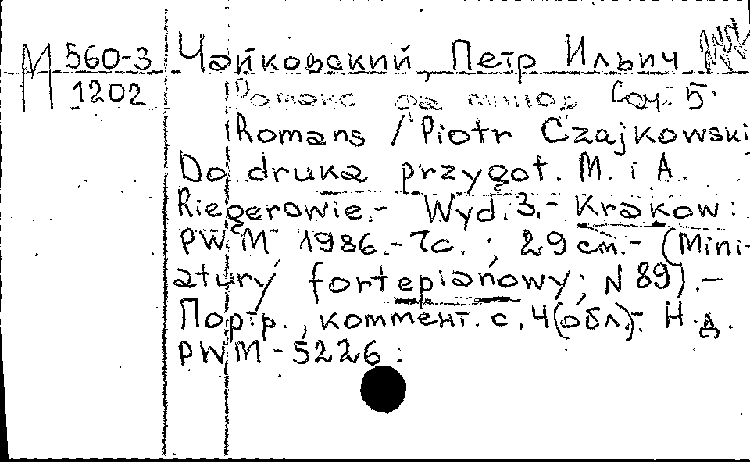 М 560-3 Чайковский, Петр Ильич
1202 Романс фа минор Соч. 5.
Romans / Piotr Czajkowski
Do druku przygot. M. i A.
Riegerowie.- Wyd. 3.- Krakow:
PWM 1986.- 7с.; 29 см.- (Mini-
atury fortepianowy; N 89).-
Портр., коммент. с. 4 (обл.).- Н.д.
PWM - 5226: